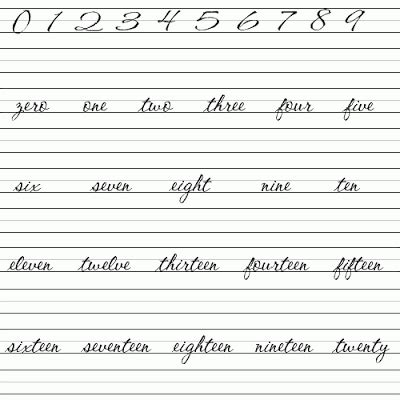 0 1 2 3 4 5 6 7 8 9
zero one two three four five
six seven eight nine ten
eleven twelve thirteen fourteen fifteen
sixteen seventeen eighteen nineteen twenty